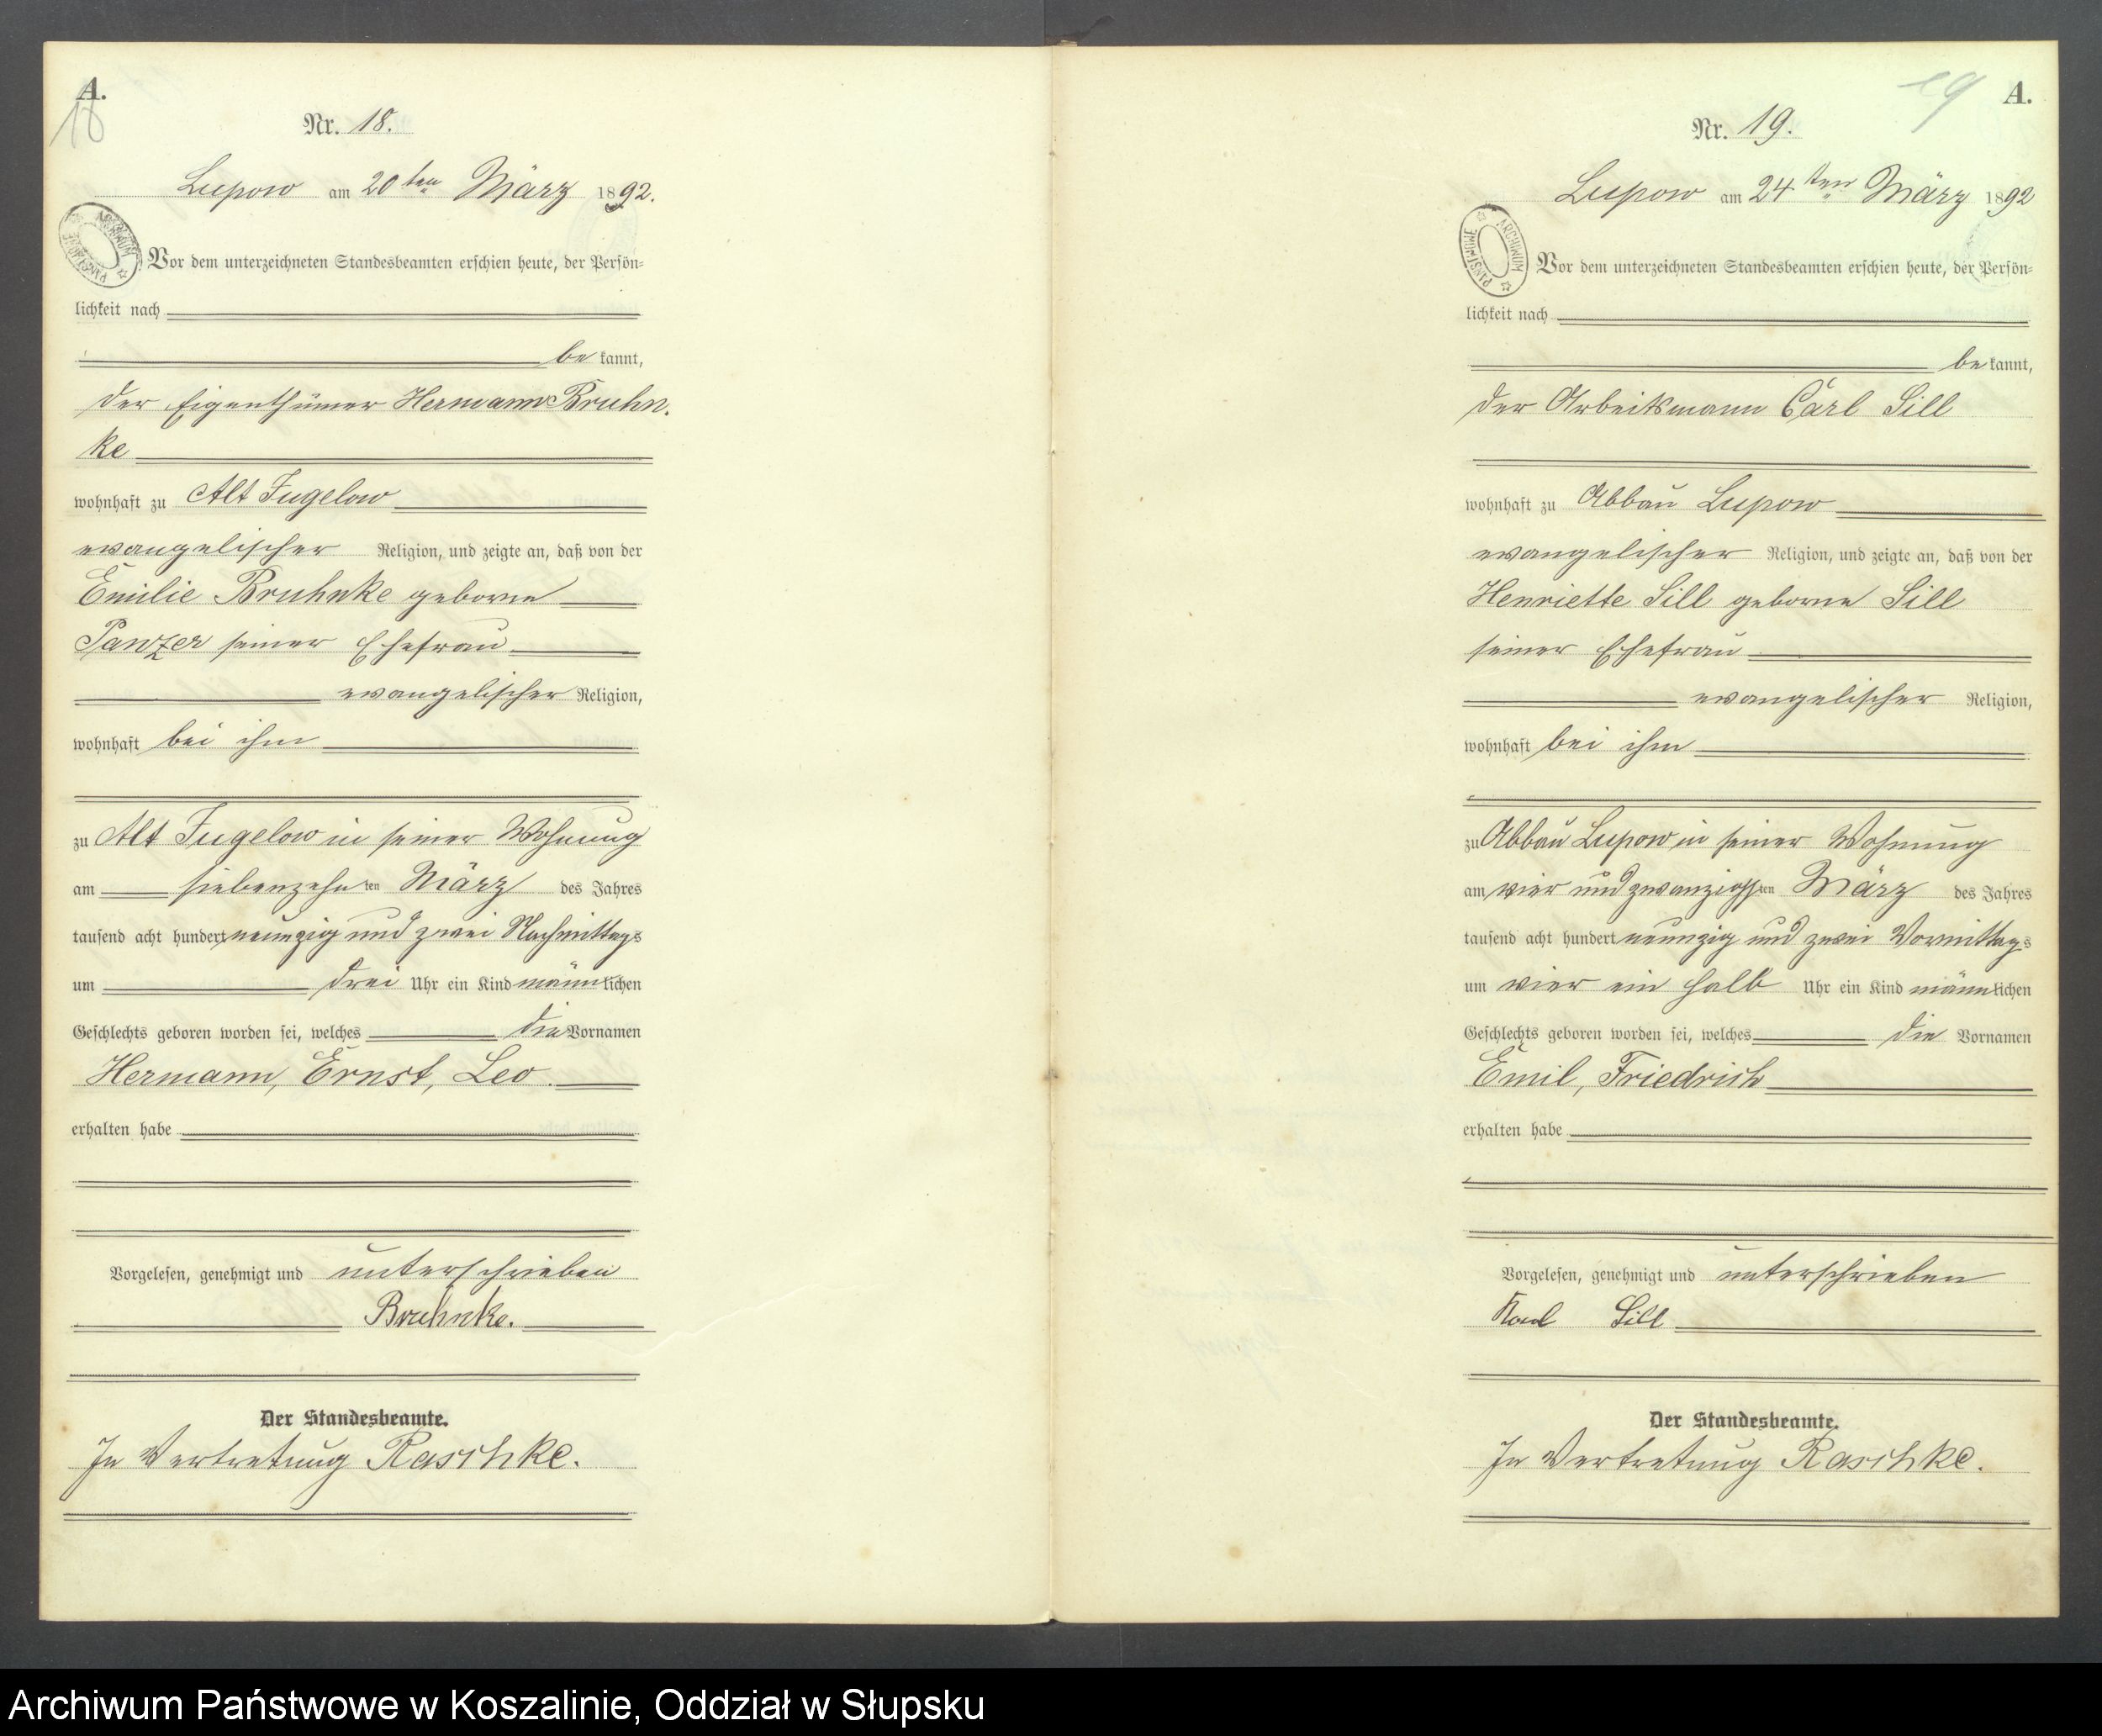 A.
18
Nr. 18.
Lupow am 20ten März 1892.
ARCHIWUM PAŃSTWOWE
Vor dem unterzeichneten Standesbeamten erschien heute, der Persön-
lichkeit nach
be kannt,
der Eigenthümer Hermann Bruhn-
ke
wohnhaft zu Alt Jugelow
evangelischer Religion, und zeigte an, daß von der
Emilie Bruhnke geborne
Panzer seiner Ehefrau
evangelischer Religion,
wohnhaft bei ihm
zu Alt Jugelow in seiner Wohnung
am siebenzehn ten März des Jahres
tausend acht hundert neunzig und zwei Nachmittags
um drei Uhr ein Kind männ lichen
Geschlechts geboren worden sei, welches die Vornamen
Hermann, Ernst, Leo.
erhalten habe
Vorgelesen, genehmigt und unterschrieben
Bruhnke.
Der Standesbeamte.
In Vertretung Raschke.
19 A.
Nr. 19.
Lupow am 24ten März 1892
ARCHIWUM PAŃSTWOWE
Vor dem unterzeichneten Standesbeamten erschien heute, der Persön-
lichkeit nach
be kannt,
der Arbeitsmann Carl Sill
wohnhaft zu Abbau Lupow
evangelischer Religion, und zeigte an, daß von der
Henriette Sill geborne Sill
seiner Ehefrau
evangelischer Religion,
wohnhaft bei ihm
zu Abbau Lupow in seiner Wohnung
am vier und zwanzigsten März des Jahres
tausend acht hundert neunzig und zwei Vormittags
um vier ein halb Uhr ein Kind männ lichen
Geschlechts geboren worden sei, welches die Vornamen
Emil, Friedrich
erhalten habe
Vorgelesen, genehmigt und unterschrieben
Karl Sill
Der Standesbeamte.
In Vertretung Raschke.
Archiwum Państwowe w Koszalinie, Oddział w Słupsku